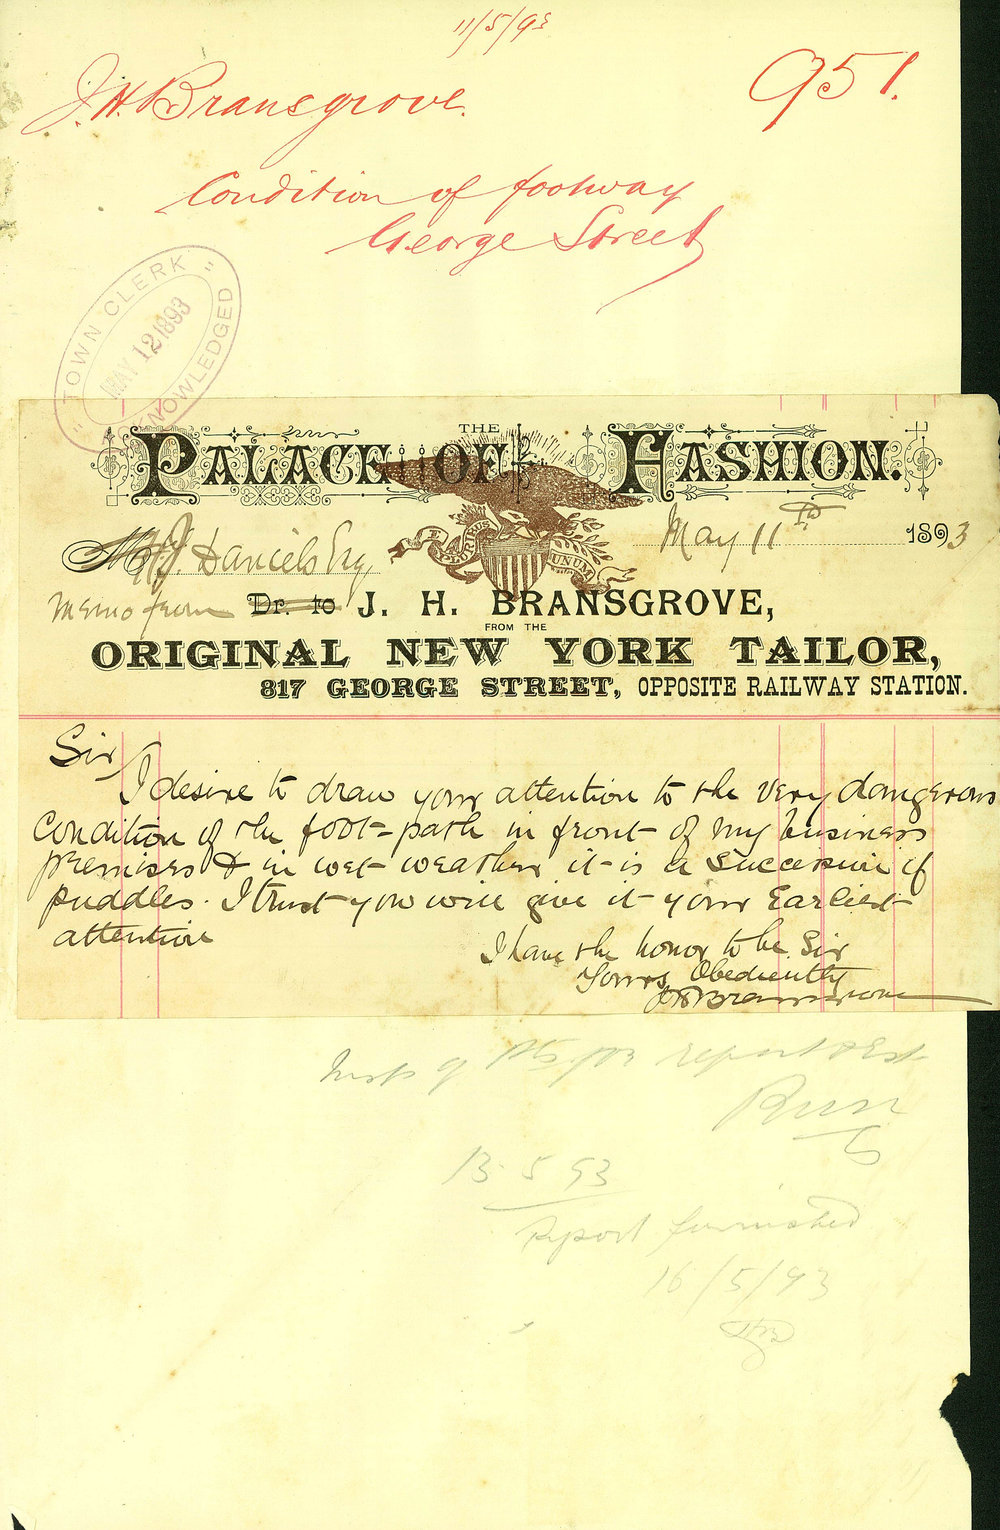 11/5/93
J. H. Bransgrove.
951.
Condition of footway
George Street
"TOWN CLERK"
MAY 12 1893
ACKNOWLEDGED
THE
PALACE OF FASHION.
E PLURIBUS UNUM
May 11th 1893
Daniels Esq
Memo from Dr. to J. H. BRANSGROVE,
FROM THE
ORIGINAL NEW YORK TAILOR,
817 GEORGE STREET, OPPOSITE RAILWAY STATION.
Sir
I desire to draw your attention to the very dangerous
condition of the foot-path in front of my business
premises & in wet weather it is a succession of
puddles. I trust you will give it your Earliest
attention
I have the honor to be Sir
Yours Obediently
J H Bransgrove
report & Est
13.5.93
Report furnished
16/5/93